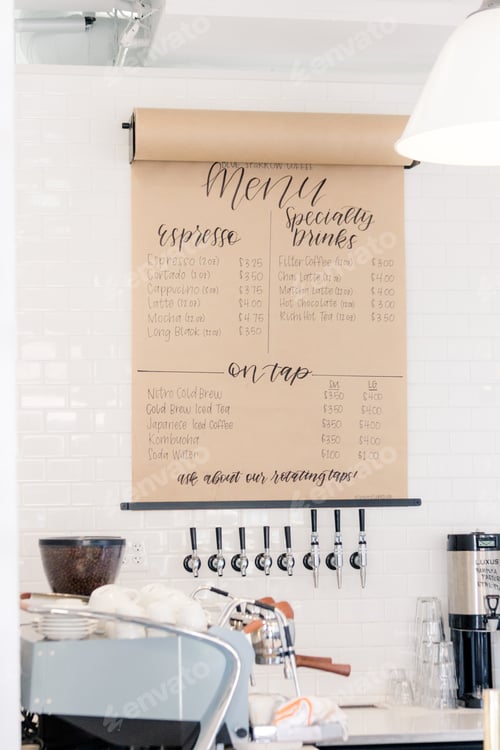 Blue Sparrow Coffee
Menu
Espresso
Espresso (2 oz) $3.25
Cortado (2 oz) $3.50
Cappuccino (6 oz) $3.75
Latte (12 oz) $4.00
Mocha (12 oz) $4.75
Long Black (12 oz) $3.50
Specialty
Drinks
Filter Coffee (12 oz) $3.00
Chai Latte (12 oz) $4.00
Matcha Latte (12 oz) $4.00
Hot Chocolate (12 oz) $3.00
Rishi Hot Tea (12 oz) $3.50
on tap
SM LG
Nitro Cold Brew $3.50 $4.00
Cold Brew Iced Tea $3.50 $4.00
Japanese Iced Coffee $3.50 $4.00
Kombucha $3.50 $4.00
Soda Water $1.00 $1.00
ask about our rotating taps!
LUXUS
envato